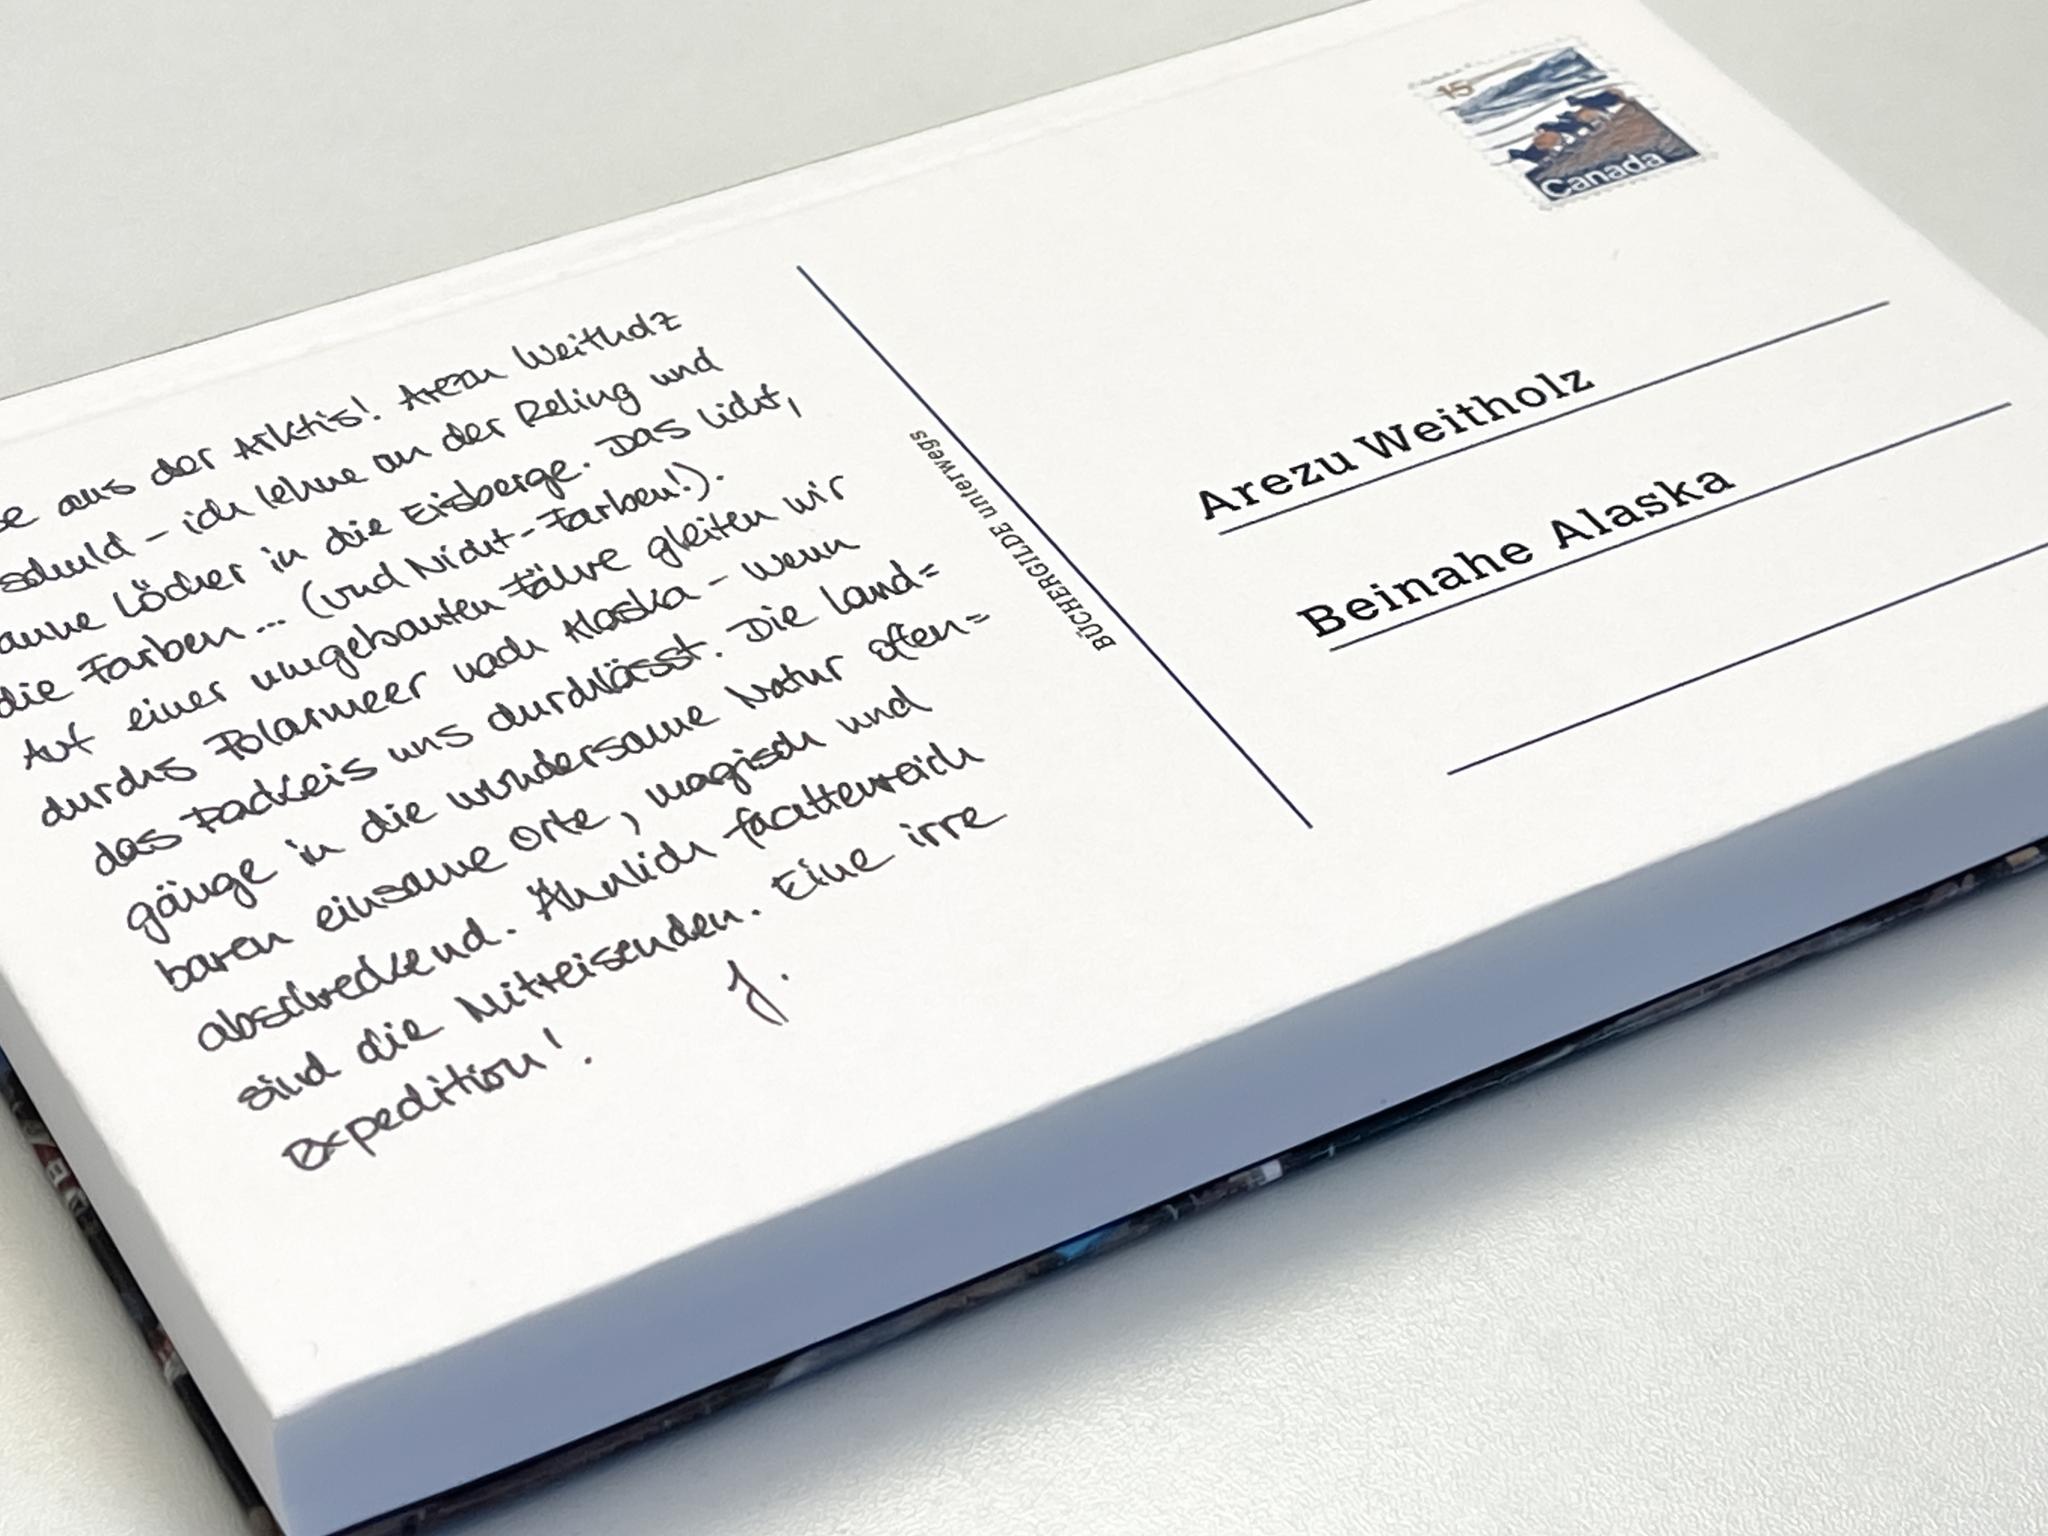 aus der Arktis! Arezu Weitholz
schuld – ich lehne an der Reling und
Löcher in die Eisberge. Das Licht,
die Farben... (und Nicht-Farben!).
Auf einer umgebauten Fähre gleiten wir
durchs Polarmeer nach Alaska – wenn
das Packeis uns durchlässt. Die Land=
gänge in die wundersame Natur offen=
baren einsame Orte, magisch und
abschreckend. Ähnlich facettenreich
sind die Mitreisenden. Eine irre
Expedition!
J.
BÜCHERGILDE unterwegs
15
Canada
Arezu Weitholz
Beinahe Alaska